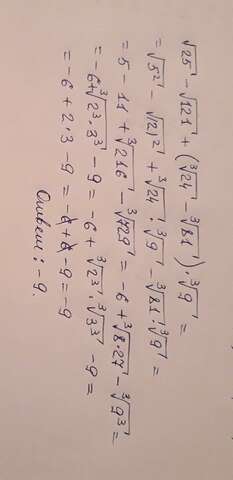 √25 - √121 + (∛24 - ∛81) · ∛9 =
= √5² - √11² + ∛24 · ∛9 - ∛81 · ∛9 =
= 5 - 11 + ∛216 - ∛729 = -6 + ∛8·27 - ∛9³ =
= -6 + ∛2³·3³ - 9 = -6 + ∛2³ · ∛3³ - 9 =
= -6 + 2·3 - 9 = -6 + 6 - 9 = -9
Ответ: -9.